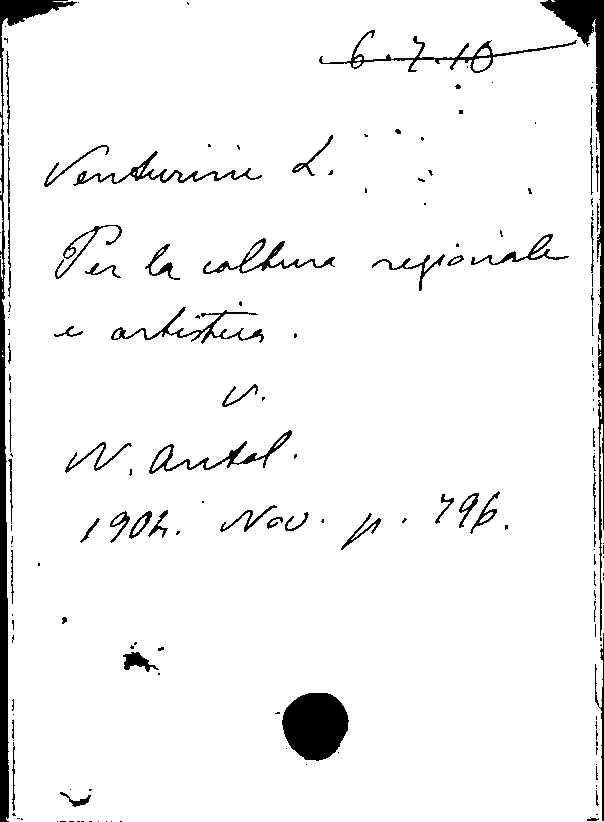 6.7.10
Venturini L.
Per la coltura regionale
e artistica.
v.
N. Antol.
1904. Nov. p. 796.